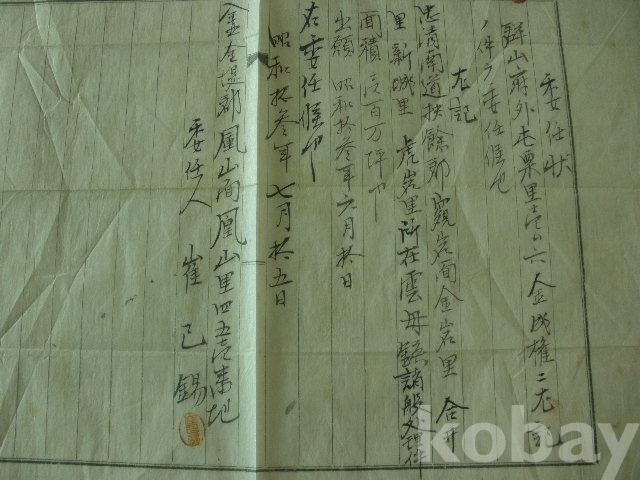 委任狀
群山府外屯栗里壱〇六 金成權ニ左記
ノ件ヲ委任候也
左記
忠清南道扶餘郡窺岩面金岩里 合井
里新城里 虎岩里所在雲母鑛諸般
面積壱百万坪
出願 昭和拾参年六月拾日
右委任候
昭和拾参年七月拾五日
金堤郡鳳山面鳳山里四五壱番地
委任人 崔己錫
kobay